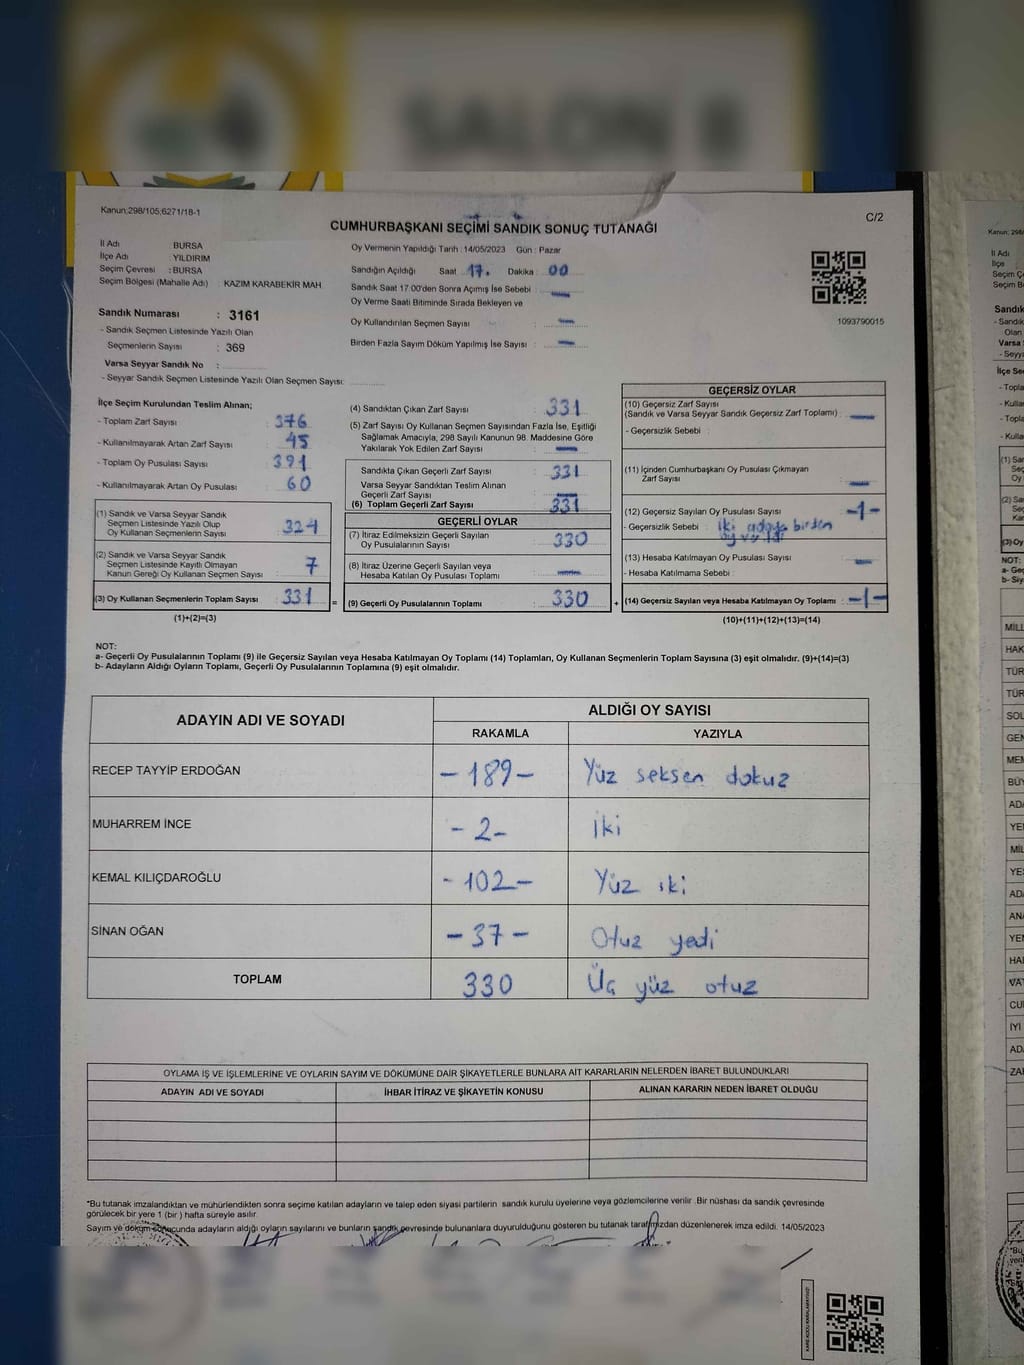 Kanun;298/105;6271/18-1
C/2
CUMHURBAŞKANI SEÇİMİ SANDIK SONUÇ TUTANAĞI
İl Adı BURSA
İlçe Adı YILDIRIM
Seçim Çevresi : BURSA
Seçim Bölgesi (Mahalle Adı) : KAZIM KARABEKİR MAH.
Oy Vermenin Yapıldığı Tarih : 14/05/2023 Gün : Pazar
Sandığın Açıldığı Saat : 17. Dakika : 00
Sandık Saat 17.00'den Sonra Açımış İse Sebebi : —
Oy Verme Saati Bitiminde Sırada Bekleyen ve
Oy Kullandırılan Seçmen Sayısı : —
Birden Fazla Sayım Döküm Yapılmış İse Sayısı : —
1093790015
Sandık Numarası : 3161
- Sandık Seçmen Listesinde Yazılı Olan
Seçmenlerin Sayısı : 369
Varsa Seyyar Sandık No :
- Seyyar Sandık Seçmen Listesinde Yazılı Olan Seçmen Sayısı:
İlçe Seçim Kurulundan Teslim Alınan;
- Toplam Zarf Sayısı : 376
- Kullanılmayarak Artan Zarf Sayısı : 45
- Toplam Oy Pusulası Sayısı : 391
- Kullanılmayarak Artan Oy Pusulası : 60
(1) Sandık ve Varsa Seyyar Sandık
Seçmen Listesinde Yazılı Olup
Oy Kullanan Seçmenlerin Sayısı : 324
(2) Sandık ve Varsa Seyyar Sandık
Seçmen Listesinde Kayıtlı Olmayan
Kanun Gereği Oy Kullanan Seçmen Sayısı : 7
(3) Oy Kullanan Seçmenlerin Toplam Sayısı : 331
(1)+(2)=(3)
(4) Sandıktan Çıkan Zarf Sayısı : 331
(5) Zarf Sayısı Oy Kullanan Seçmen Sayısından Fazla İse, Eşitliği
Sağlamak Amacıyla; 298 Sayılı Kanunun 98. Maddesine Göre
Yakılarak Yok Edilen Zarf Sayısı : —
Sandıkta Çıkan Geçerli Zarf Sayısı : 331
Varsa Seyyar Sandıktan Teslim Alınan
Geçerli Zarf Sayısı : —
(6) Toplam Geçerli Zarf Sayısı : 331
GEÇERLİ OYLAR
(7) İtiraz Edilmeksizin Geçerli Sayılan
Oy Pusulalarının Sayısı : 330
(8) İtiraz Üzerine Geçerli Sayılan veya
Hesaba Katılan Oy Pusulası Toplamı : —
= (9) Geçerli Oy Pusulalarının Toplamı : 330
GEÇERSİZ OYLAR
(10) Geçersiz Zarf Sayısı
(Sandık ve Varsa Seyyar Sandık Geçersiz Zarf Toplamı) : —
- Geçersizlik Sebebi :
(11) İçinden Cumhurbaşkanı Oy Pusulası Çıkmayan
Zarf Sayısı : —
(12) Geçersiz Sayılan Oy Pusulası Sayısı : -1-
- Geçersizlik Sebebi : iki adaya birden
oy
(13) Hesaba Katılmayan Oy Pusulası Sayısı : —
- Hesaba Katılmama Sebebi :
+ (14) Geçersiz Sayılan veya Hesaba Katılmayan Oy Toplamı : -1-
(10)+(11)+(12)+(13)=(14)
NOT:
a- Geçerli Oy Pusulalarının Toplamı (9) ile Geçersiz Sayılan veya Hesaba Katılmayan Oy Toplamı (14) Toplamları, Oy Kullanan Seçmenlerin Toplam Sayısına (3) eşit olmalıdır. (9)+(14)=(3)
b- Adayların Aldığı Oyların Toplamı, Geçerli Oy Pusulalarının Toplamına (9) eşit olmalıdır.
ADAYIN ADI VE SOYADI
ALDIĞI OY SAYISI
RAKAMLA YAZIYLA
RECEP TAYYİP ERDOĞAN -189- Yüz seksen dokuz
MUHARREM İNCE -2- İki
KEMAL KILIÇDAROĞLU -102- Yüz iki
SİNAN OĞAN -37- Otuz yedi
TOPLAM 330 Üç yüz otuz
OYLAMA İŞ VE İŞLEMLERİNE VE OYLARIN SAYIM VE DÖKÜMÜNE DAİR ŞİKAYETLERLE BUNLARA AİT KARARLARIN NELERDEN İBARET BULUNDUKLARI
ADAYIN ADI VE SOYADI İHBAR İTİRAZ VE ŞİKAYETİN KONUSU ALINAN KARARIN NEDEN İBARET OLDUĞU
*Bu tutanak imzalandıktan ve mühürlendikten sonra seçime katılan adayların ve talep eden siyasi partilerin sandık kurulu üyelerine veya gözlemcilerine verilir. Bir nüshası da sandık çevresinde
görülecek bir yere 1 (bir) hafta süreyle asılır.
Sayım ve döküm sonucunda adayların aldığı oyların sayılarını ve bunların sandık çevresinde bulunanlara duyurulduğunu gösteren bu tutanak tarafımızdan düzenlenerek imza edildi. 14/05/2023